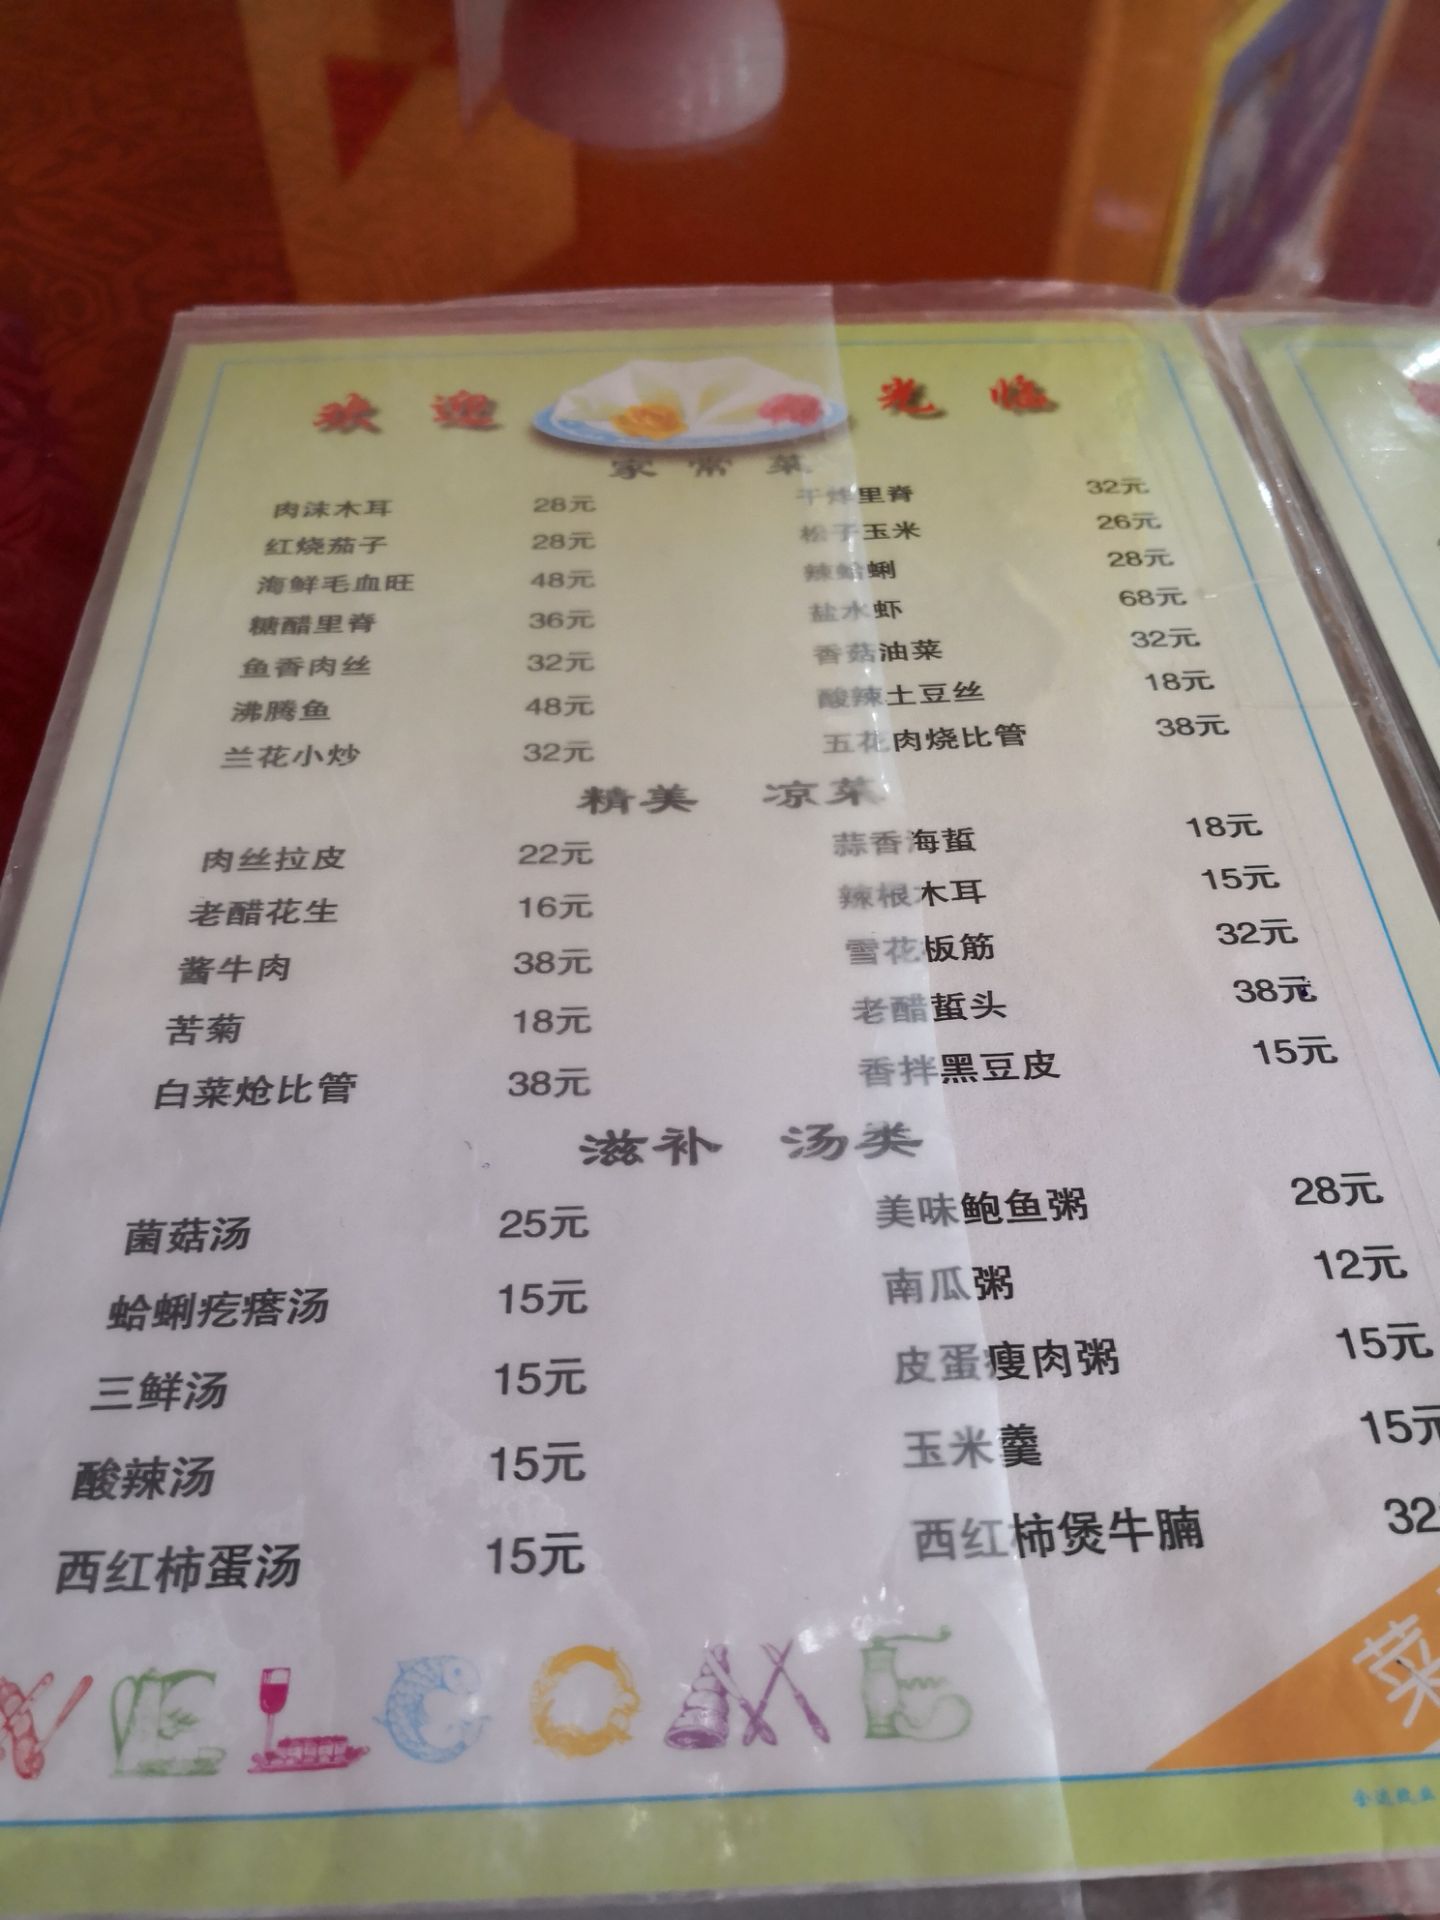 欢迎 光临
家常菜
肉沫木耳 28元 干炸里脊 32元
红烧茄子 28元 松子玉米 26元
海鲜毛血旺 48元 辣蛤蜊 28元
糖醋里脊 36元 盐水虾 68元
鱼香肉丝 32元 香菇油菜 32元
沸腾鱼 48元 酸辣土豆丝 18元
兰花小炒 32元 五花肉烧比管 38元
精美 凉菜
肉丝拉皮 22元 蒜香海蜇 18元
老醋花生 16元 辣根木耳 15元
酱牛肉 38元 雪花板筋 32元
苦菊 18元 老醋蜇头 38元
白菜炝比管 38元 香拌黑豆皮 15元
滋补 汤类
菌菇汤 25元 美味鲍鱼粥 28元
蛤蜊疙瘩汤 15元 南瓜粥 12元
三鲜汤 15元 皮蛋瘦肉粥 15元
酸辣汤 15元 玉米羹 15元
西红柿蛋汤 15元 西红柿煲牛腩 32
WELCOME
菜